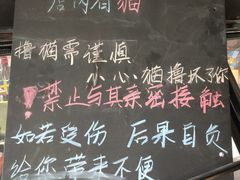 店内有猫
撸猫需谨慎
小心猫撸坏了你
！禁止与其亲密接触
如若受伤 后果自负
给你带来不便